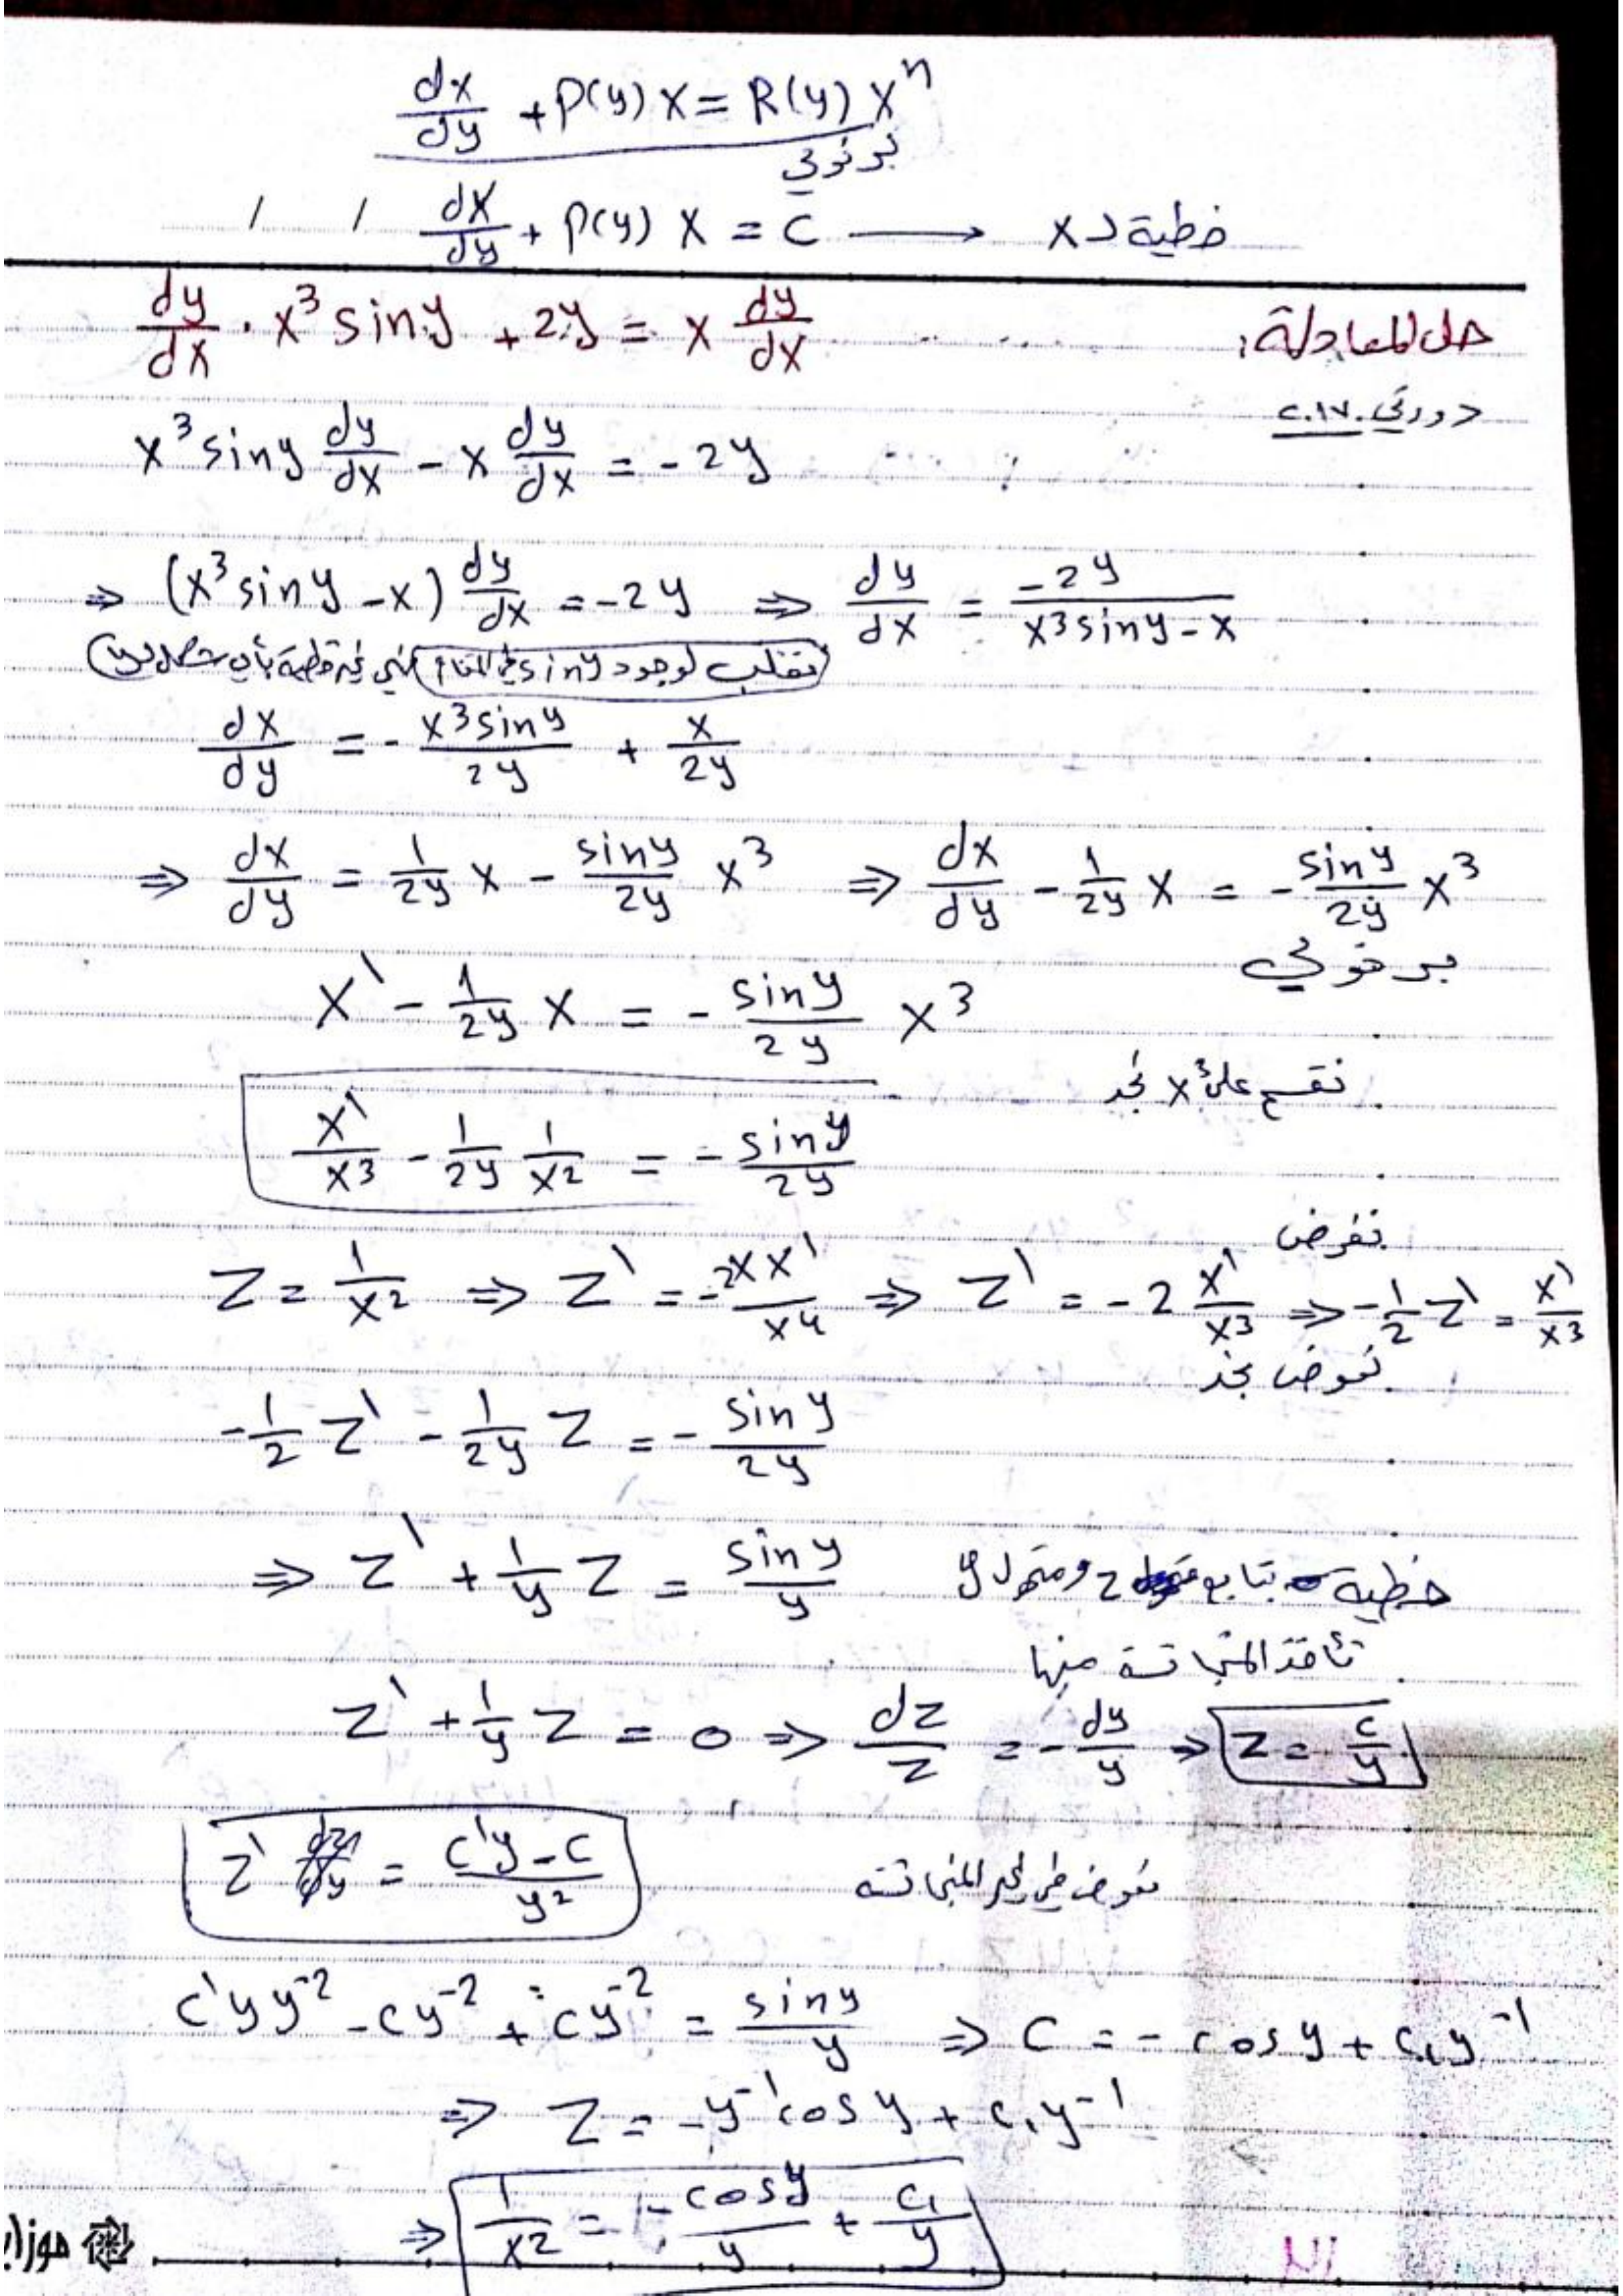 dx/dy + P(y) x = R(y) x^n
برنولي
/ / dx/dy + P(y) x = c ⟶ خطية لـ x
حل المعادلة: dy/dx · x^3 sin y + 2y = x dy/dx
دورة ٢٠١٧
x^3 sin y dy/dx - x dy/dx = -2y
⇒ (x^3 sin y - x) dy/dx = -2y ⇒ dy/dx = -2y/(x^3 sin y - x)
نقلب لوجود sin y في المقام فهي غير خطية
dx/dy = - x^3 sin y/2y + x/2y
⇒ dx/dy = 1/2y x - sin y/2y x^3 ⇒ dx/dy - 1/2y x = - sin y/2y x^3
برنولي
x' - 1/2y x = - sin y/2y x^3
نقسم على x^3 نجد
x'/x^3 - 1/2y 1/x^2 = - sin y/2y
نفرض
z = 1/x^2 ⇒ z' = -2xx'/x^4 ⇒ z' = -2 x'/x^3 ⇒ -1/2 z' = x'/x^3
نعوض نجد
-1/2 z' - 1/2y z = - sin y/2y
⇒ z' + 1/y z = sin y/y خطية بتابع z ومتحول y
نأخذ المتجانسة منها
z' + 1/y z = 0 ⇒ dz/z = - dy/y ⇒ z = c/y
z' = (c'y - c)/y^2 نعوض في غير المتجانسة
c'yy^-2 - cy^-2 + cy^-2 = sin y/y ⇒ c = - cos y + c₁y^-1
⇒ z = -y^-1 cos y + c₁y^-1
⇒ 1/x^2 = - cos y/y + c₁/y